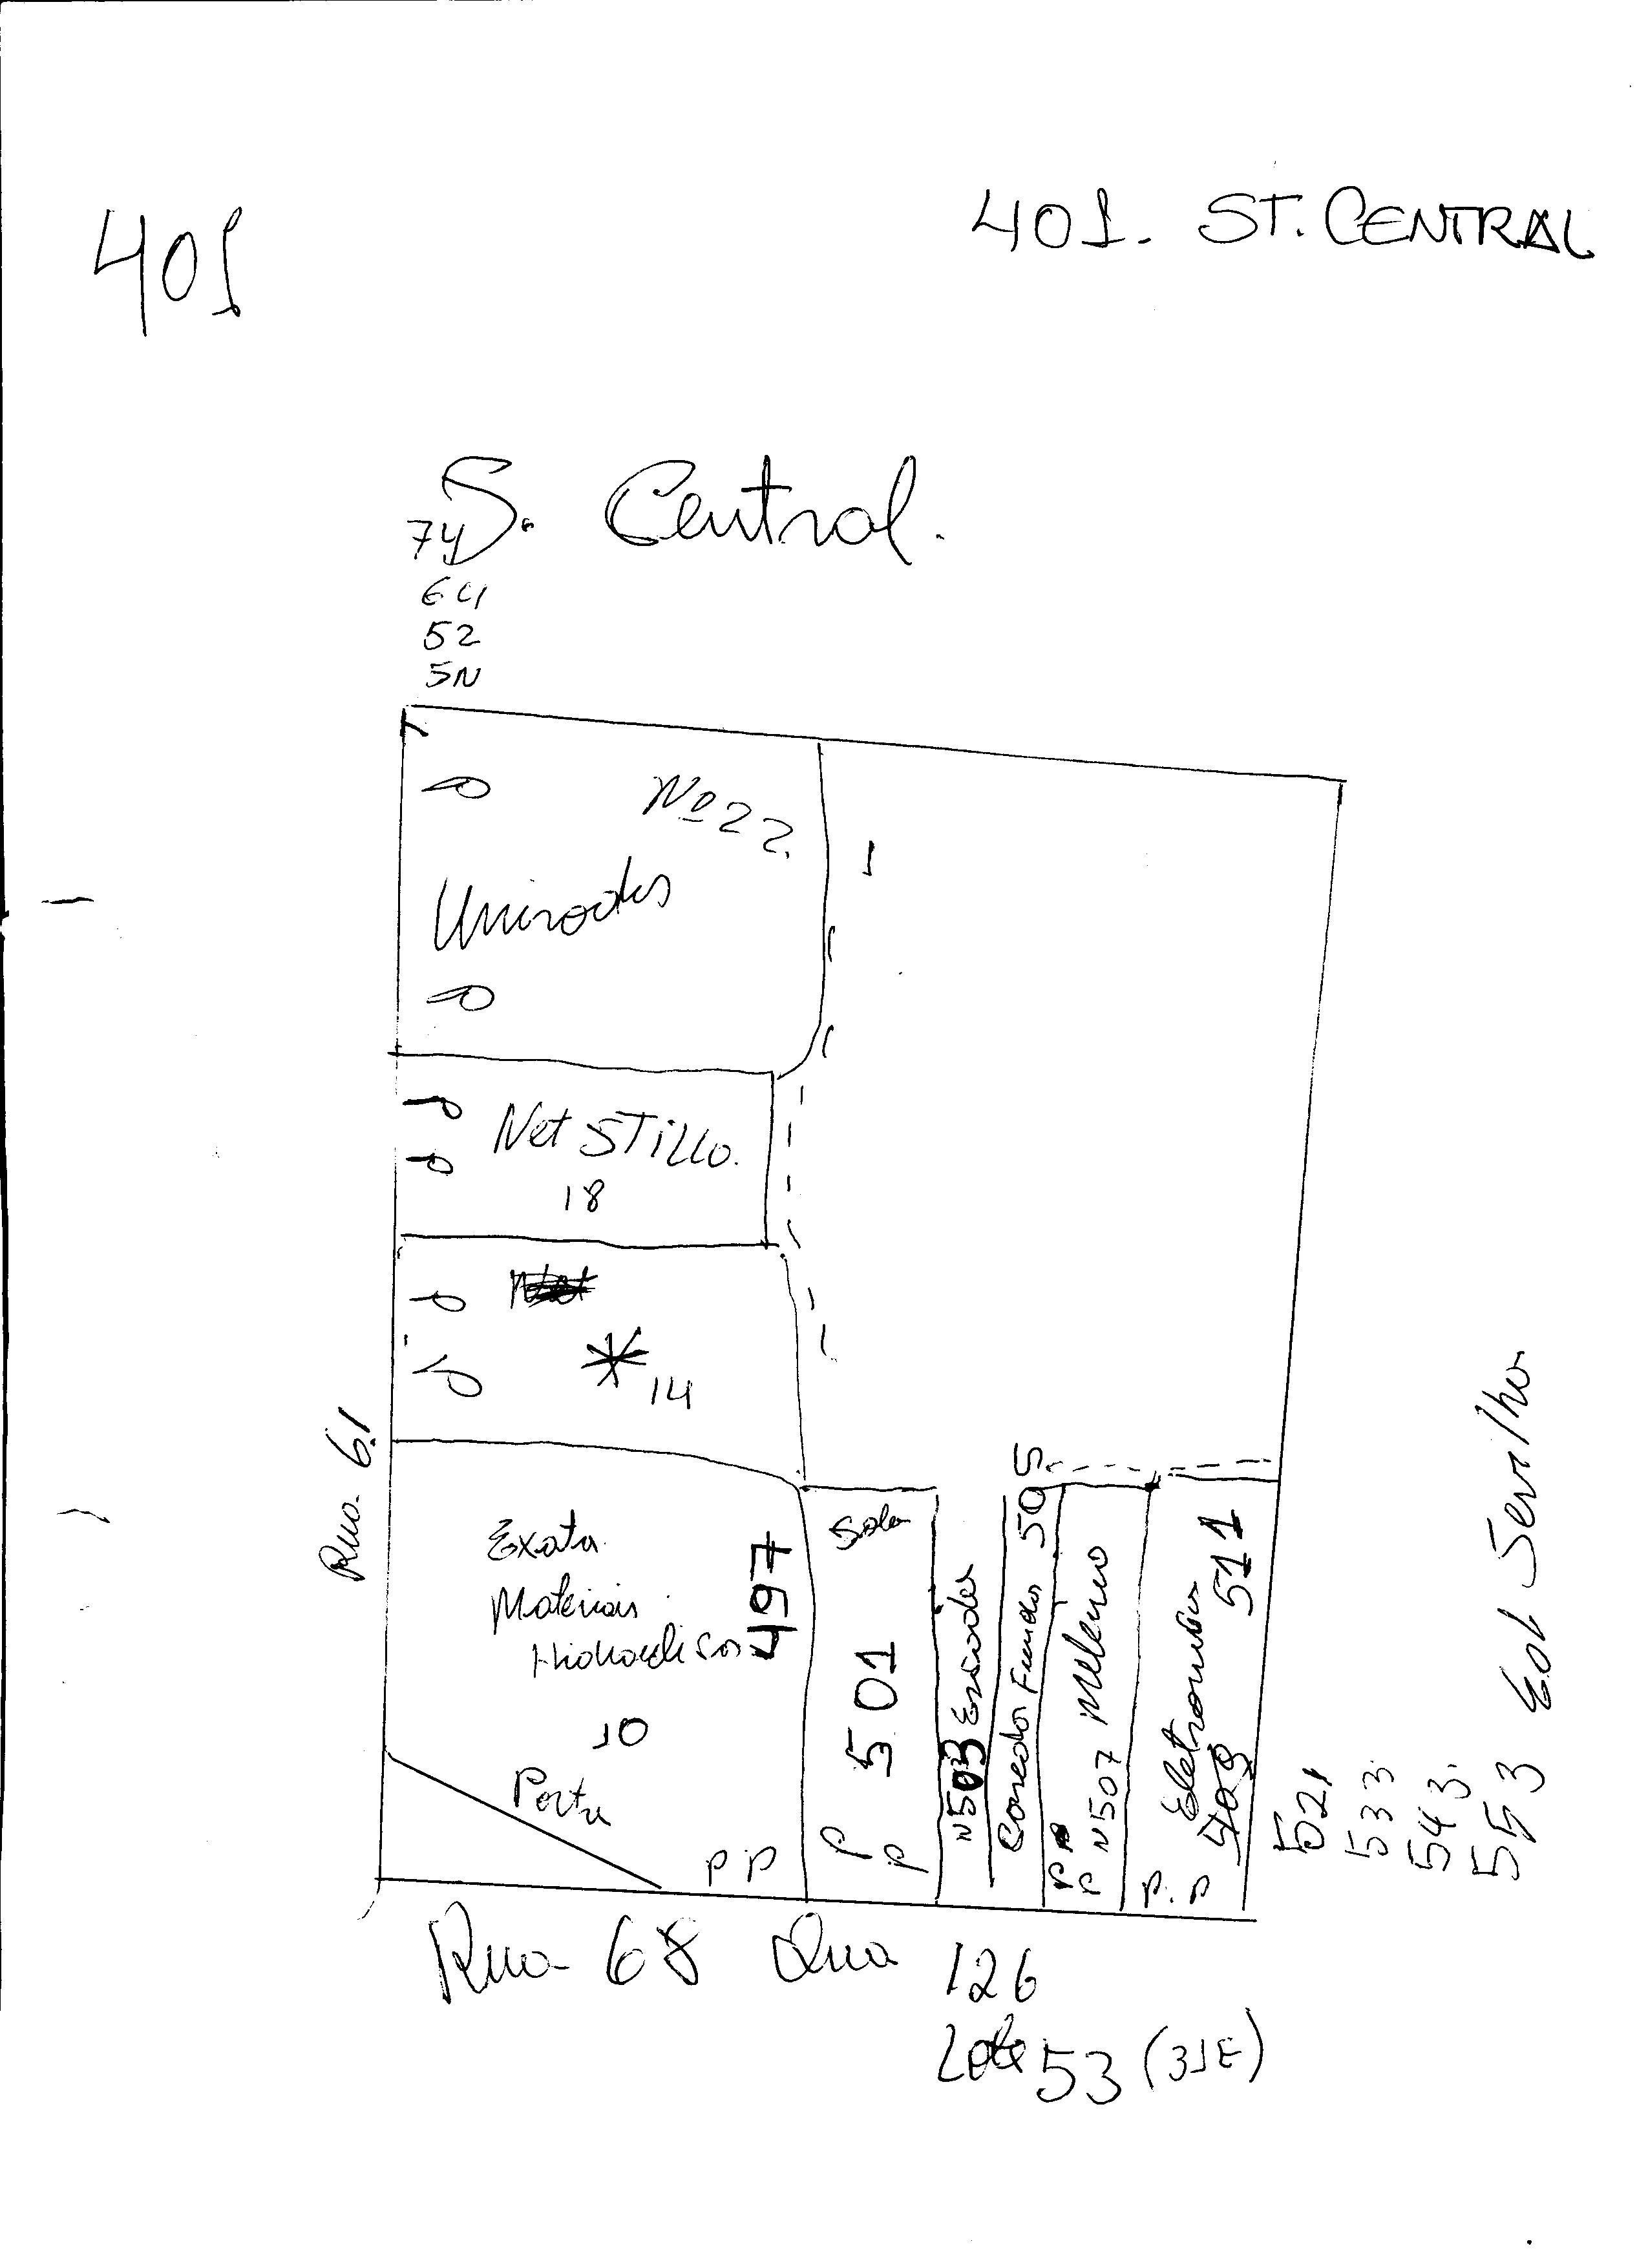 401
401. ST. CENTRAL
S. Central.
74
64
52
SN
Nº 22.
Unirodas
Net STILLO.
18
14
Rua 61
Exata
Materiais
Hidraulicos
497
10
Porta
P P
Sala
501
P
P
N 503 Escada
Corredor Fundos 505
N 507 Mileno
P
P
Eletronica 511
P. P
521
533
543.
553 Ed. Sevilha
Rua 68 Qua 126
Lote 53 (31E)